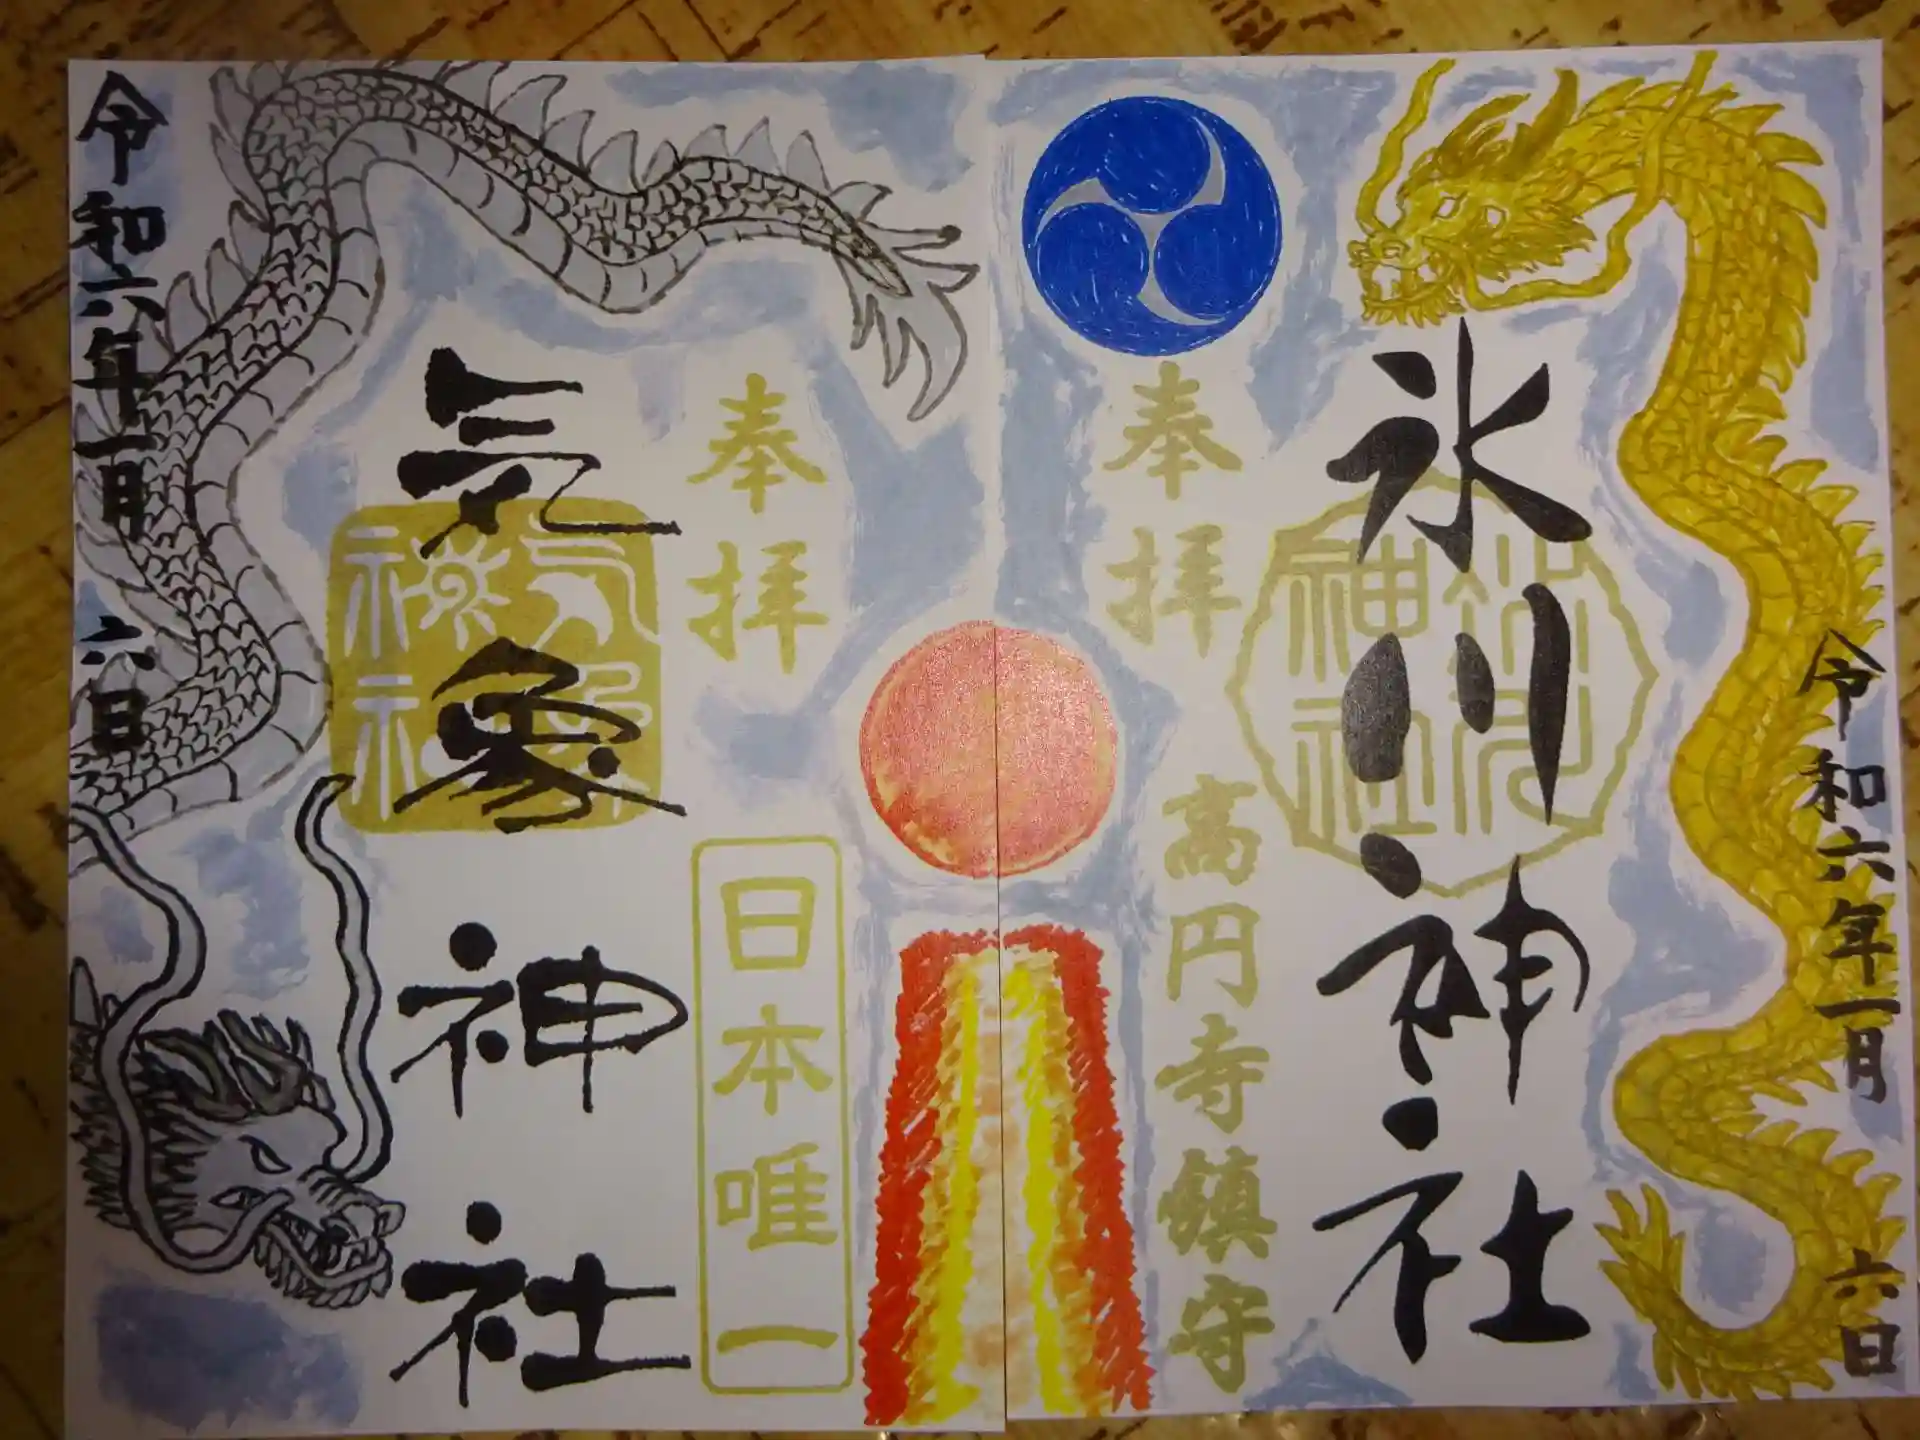 奉拝
高円寺鎮守
氷川神社
氷川神社
令和六年一月六日
奉拝
日本唯一
気象神社
令和六年一月六日